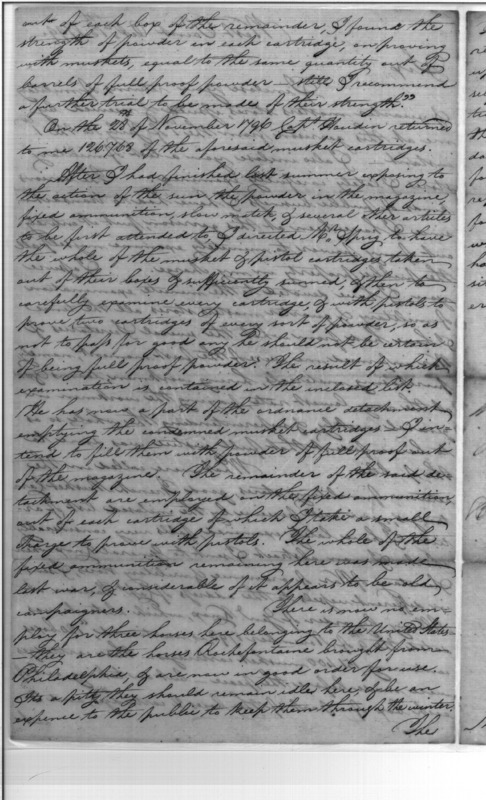 out of each box of the remainder, I found the
strength of powder in each cartridge, on proving
with muskets, equal to the same quantity out of
barrels of full proof powder — still I recommend
a further trial to be made of their strength."
On the 28th of November 1796 Capt. Houdin returned
to me 126,768 of the aforesaid musket cartridges.
After I had finished last summer exposing to
the action of the sun, the powder in the magazine,
fixed ammunition, slow match, & several other articles
to be first attended to I directed Mr. to have
the whole of the musket & pistol cartridges taken
out of their boxes & sufficiently sunned, & then to
carefully examine every cartridge, & with pistols to
prove two cartridges of every sort of powder, so as
not to pass for good any he should not be certain
of being full proof powder. The result of which
examination is contained in the inclosed list.
He has now a part of the ordnance detachment
emptying the condemned musket cartridges — I in=
tend to fill them with powder of full proof out
of the magazine. The remainder of the said de=
tachment are employed in the fixed ammunition
out of each cartridge of which I take a small
charge to prove with pistols. The whole of the
fixed ammunition remaining here was made
last war, & considerable of it appears to be old
campaigners. There is now no em=
ploy for three horses here belonging to the United States
— they are the horses Rochefontaine brought from
Philadelphia, & are now in good order for use.
Its a pity they should remain idle here, & be an
expence to the public to keep them through the winter.
The